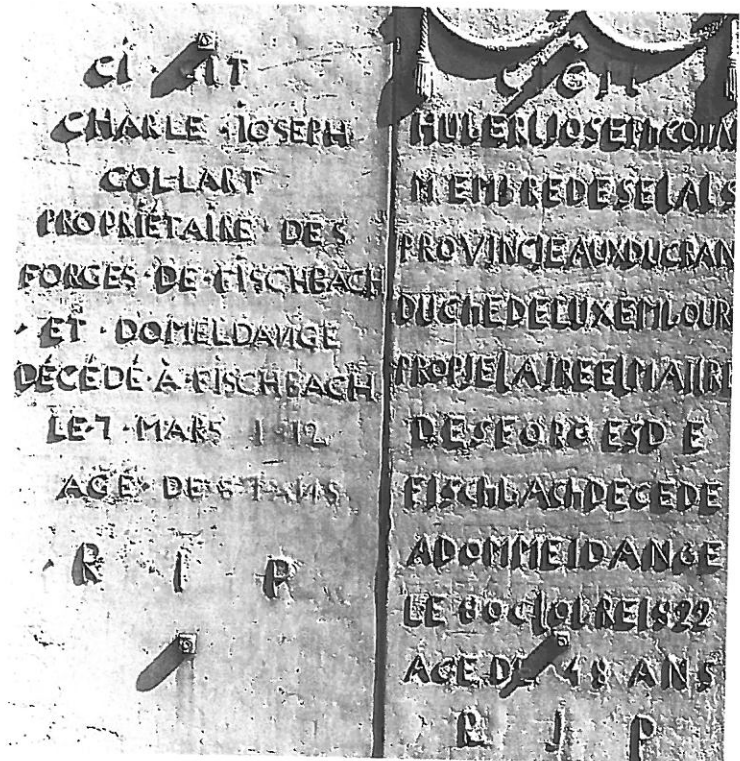 CI GIT
CHARLE · IOSEPH
COLLART
PROPRIÉTAIRE · DES
FORGES · DE · FISCHBACH
· ET · DOMELDANGE
DÉCÉDÉ · À · FISCHBACH
LE · 7 · MARS
AGÉ · DE ANS
· R I P
CI GIT
HUBERT JOSEPH COLLA
MEMBRE DES ETATS
PROVINCIEAUX DU GRAN
DUCHE DE LUXEMBOUR
PROPIETAIRE ET MAITRE
DES FORGES DE
FISCHBACH DECEDE
A DOMMELDANGE
LE 8 OCTOBRE 1822
AGE DE 48 ANS
R I P